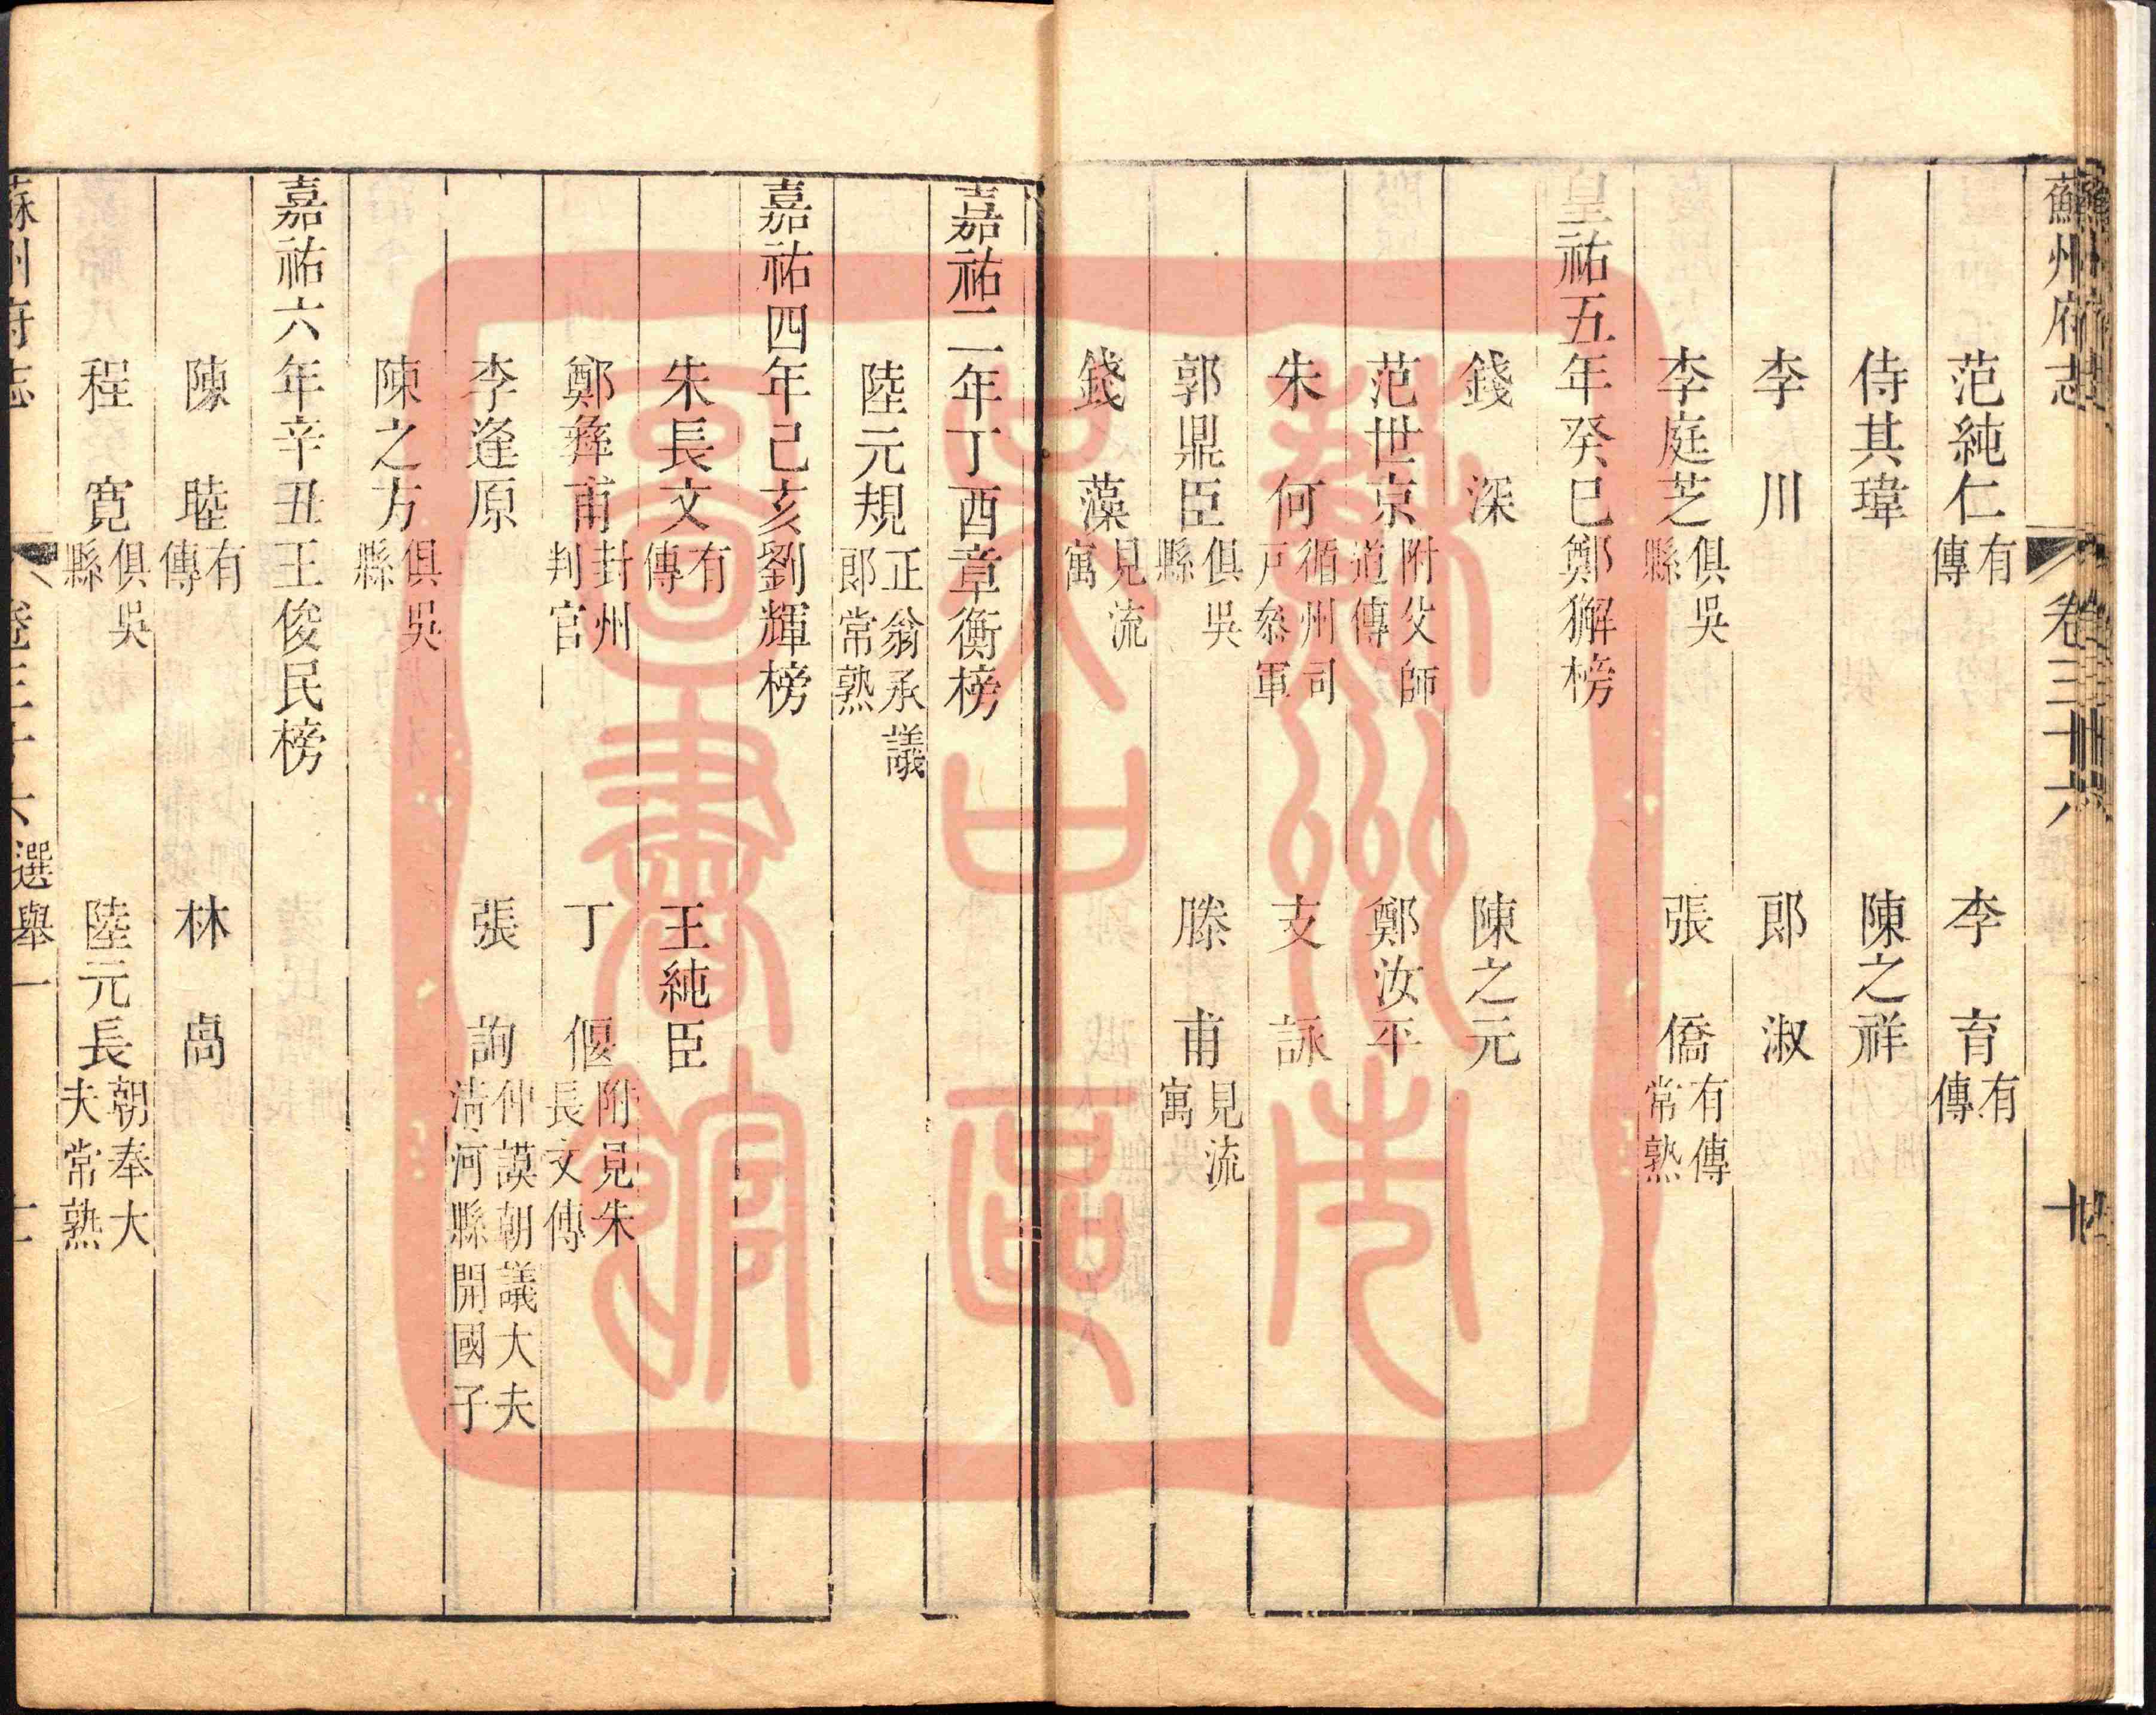 蘇州府志 卷三十六 十
范純仁 有傳 李育 有傳
侍其瑋 陳之祥
李川 郎淑
李庭芝 俱吳縣 張僑 有傳常熟
皇祐五年癸巳鄭獬榜
錢深 陳之元
范世京 附父師道傳 鄭汝平
朱何 循州司戸叅軍 支詠
郭鼎臣 俱吳縣 滕甫 見流寓
錢藻 見流寓
嘉祐二年丁酉章衡榜
陸元規 正翁承議郎常熟
嘉祐四年己亥劉輝榜
朱長文 有傳 王純臣
鄭彝甫 封州判官 丁偃 附見朱長文傳
李逢原 張詢 仲謨朝議大夫清河縣開國子
陳之方 俱吳縣
嘉祐六年辛丑王俊民榜
陳睦 有傳 林卨
程寬 俱吳縣 陸元長 朝奉大夫常熟
蘇州府志 卷三十六 選舉一